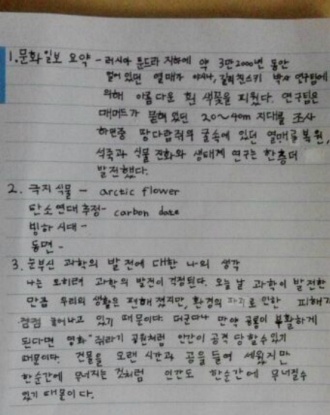 1. 문화일보 요약 - 러시아 툰드라 지하에 약 3만 2000년 동안
얼어 있던 열매가 야시나, 길리친스키 박사 연구팀에
의해 아름다운 흰 색꽃을 피웠다. 연구팀은
매머드가 묻혀 있던 20~40m 지대를 조사
하던중 땅다람쥐의 굴속에 있던 열매를 복원,
석죽과 식물 진화와 생태계 연구는 한층더
발전했다.
2. 극지 식물 - arctic flower
탄소연대 추정 - carbon date
빙하 시대 -
동면 -
3. 눈부신 과학의 발전에 대한 나의 생각
나는 오히려 과학의 발전이 걱정된다. 오늘 날 과학이 발전한
만큼 우리의 생활은 편해 졌지만, 환경의 파괴로 인한 피해가
점점 늘어나고 있기 때문이다. 더군다나 만약 공룡이 부활하게
된다면 영화 "쥬라기 공원"처럼 인간이 공격 당할수 있기
때문이다. 건물을 오랜 시간과 공을 들여 세웠지만
한순간에 무너지는 것처럼 인간도 한순간에 무너질수
있기 때문이다.